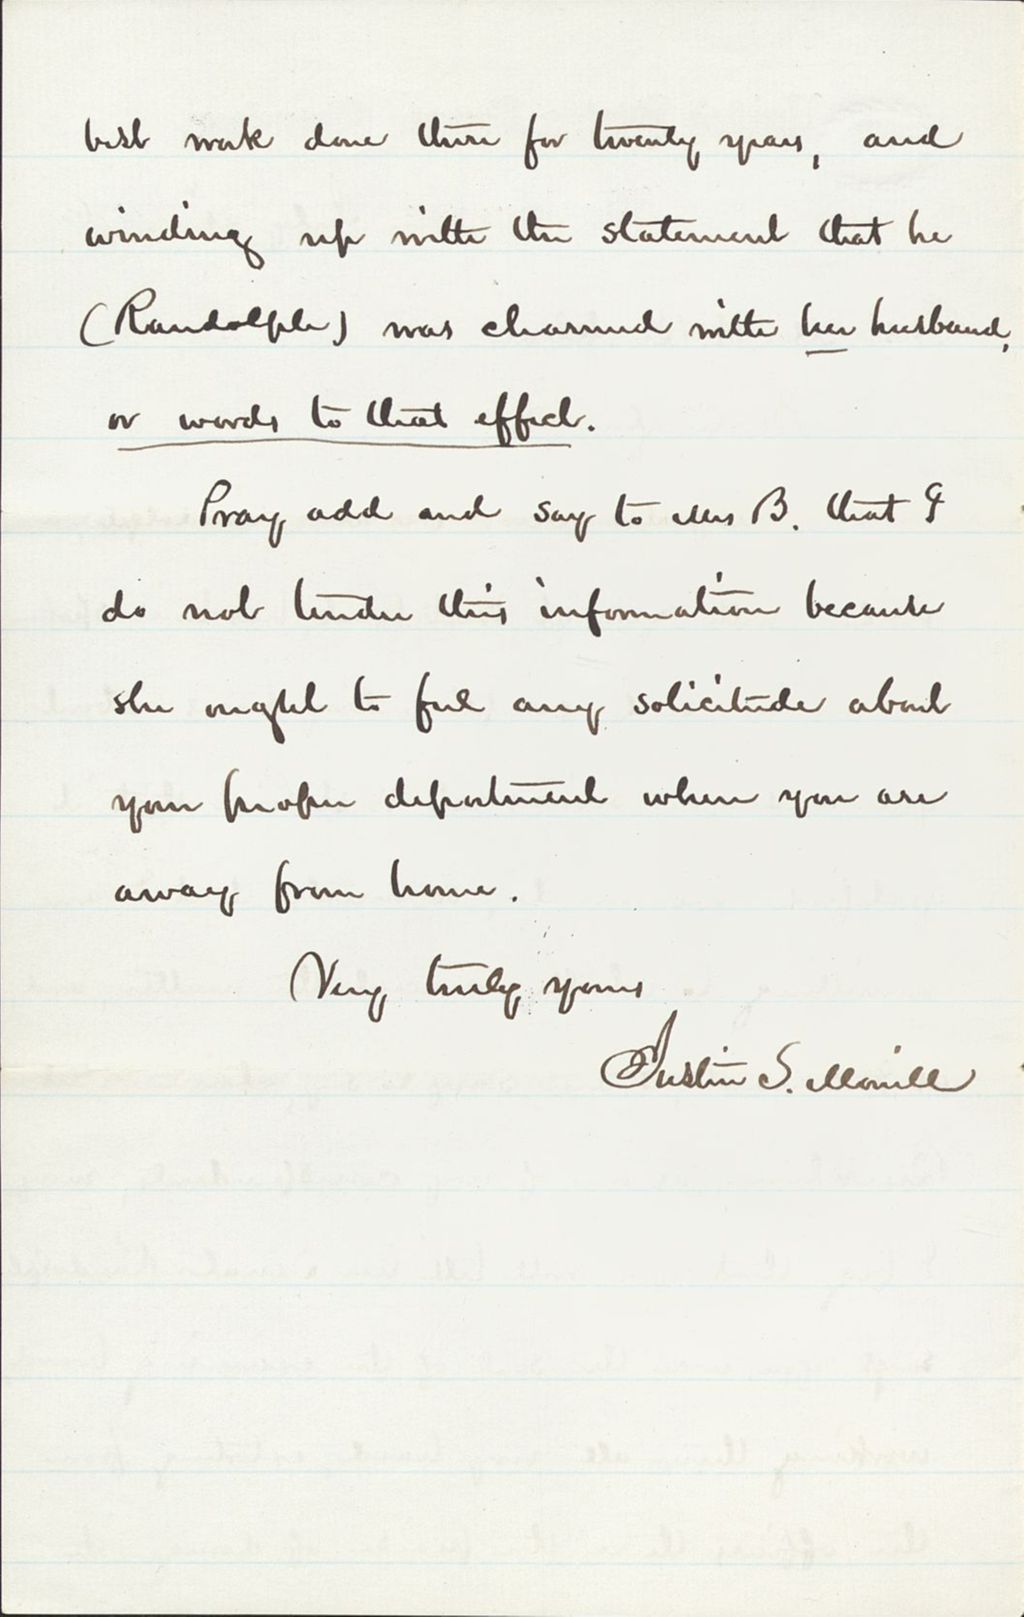 best work done there for twenty years, and
winding up with the statement that he
(Randolph) was charmed with her husband,
or words to that effect.
Pray add and say to Mrs B. that I
do not tender this information because
she ought to feel any solicitude about
your proper department when you are
away from home.
Very truly yours
Justin S. Morrill